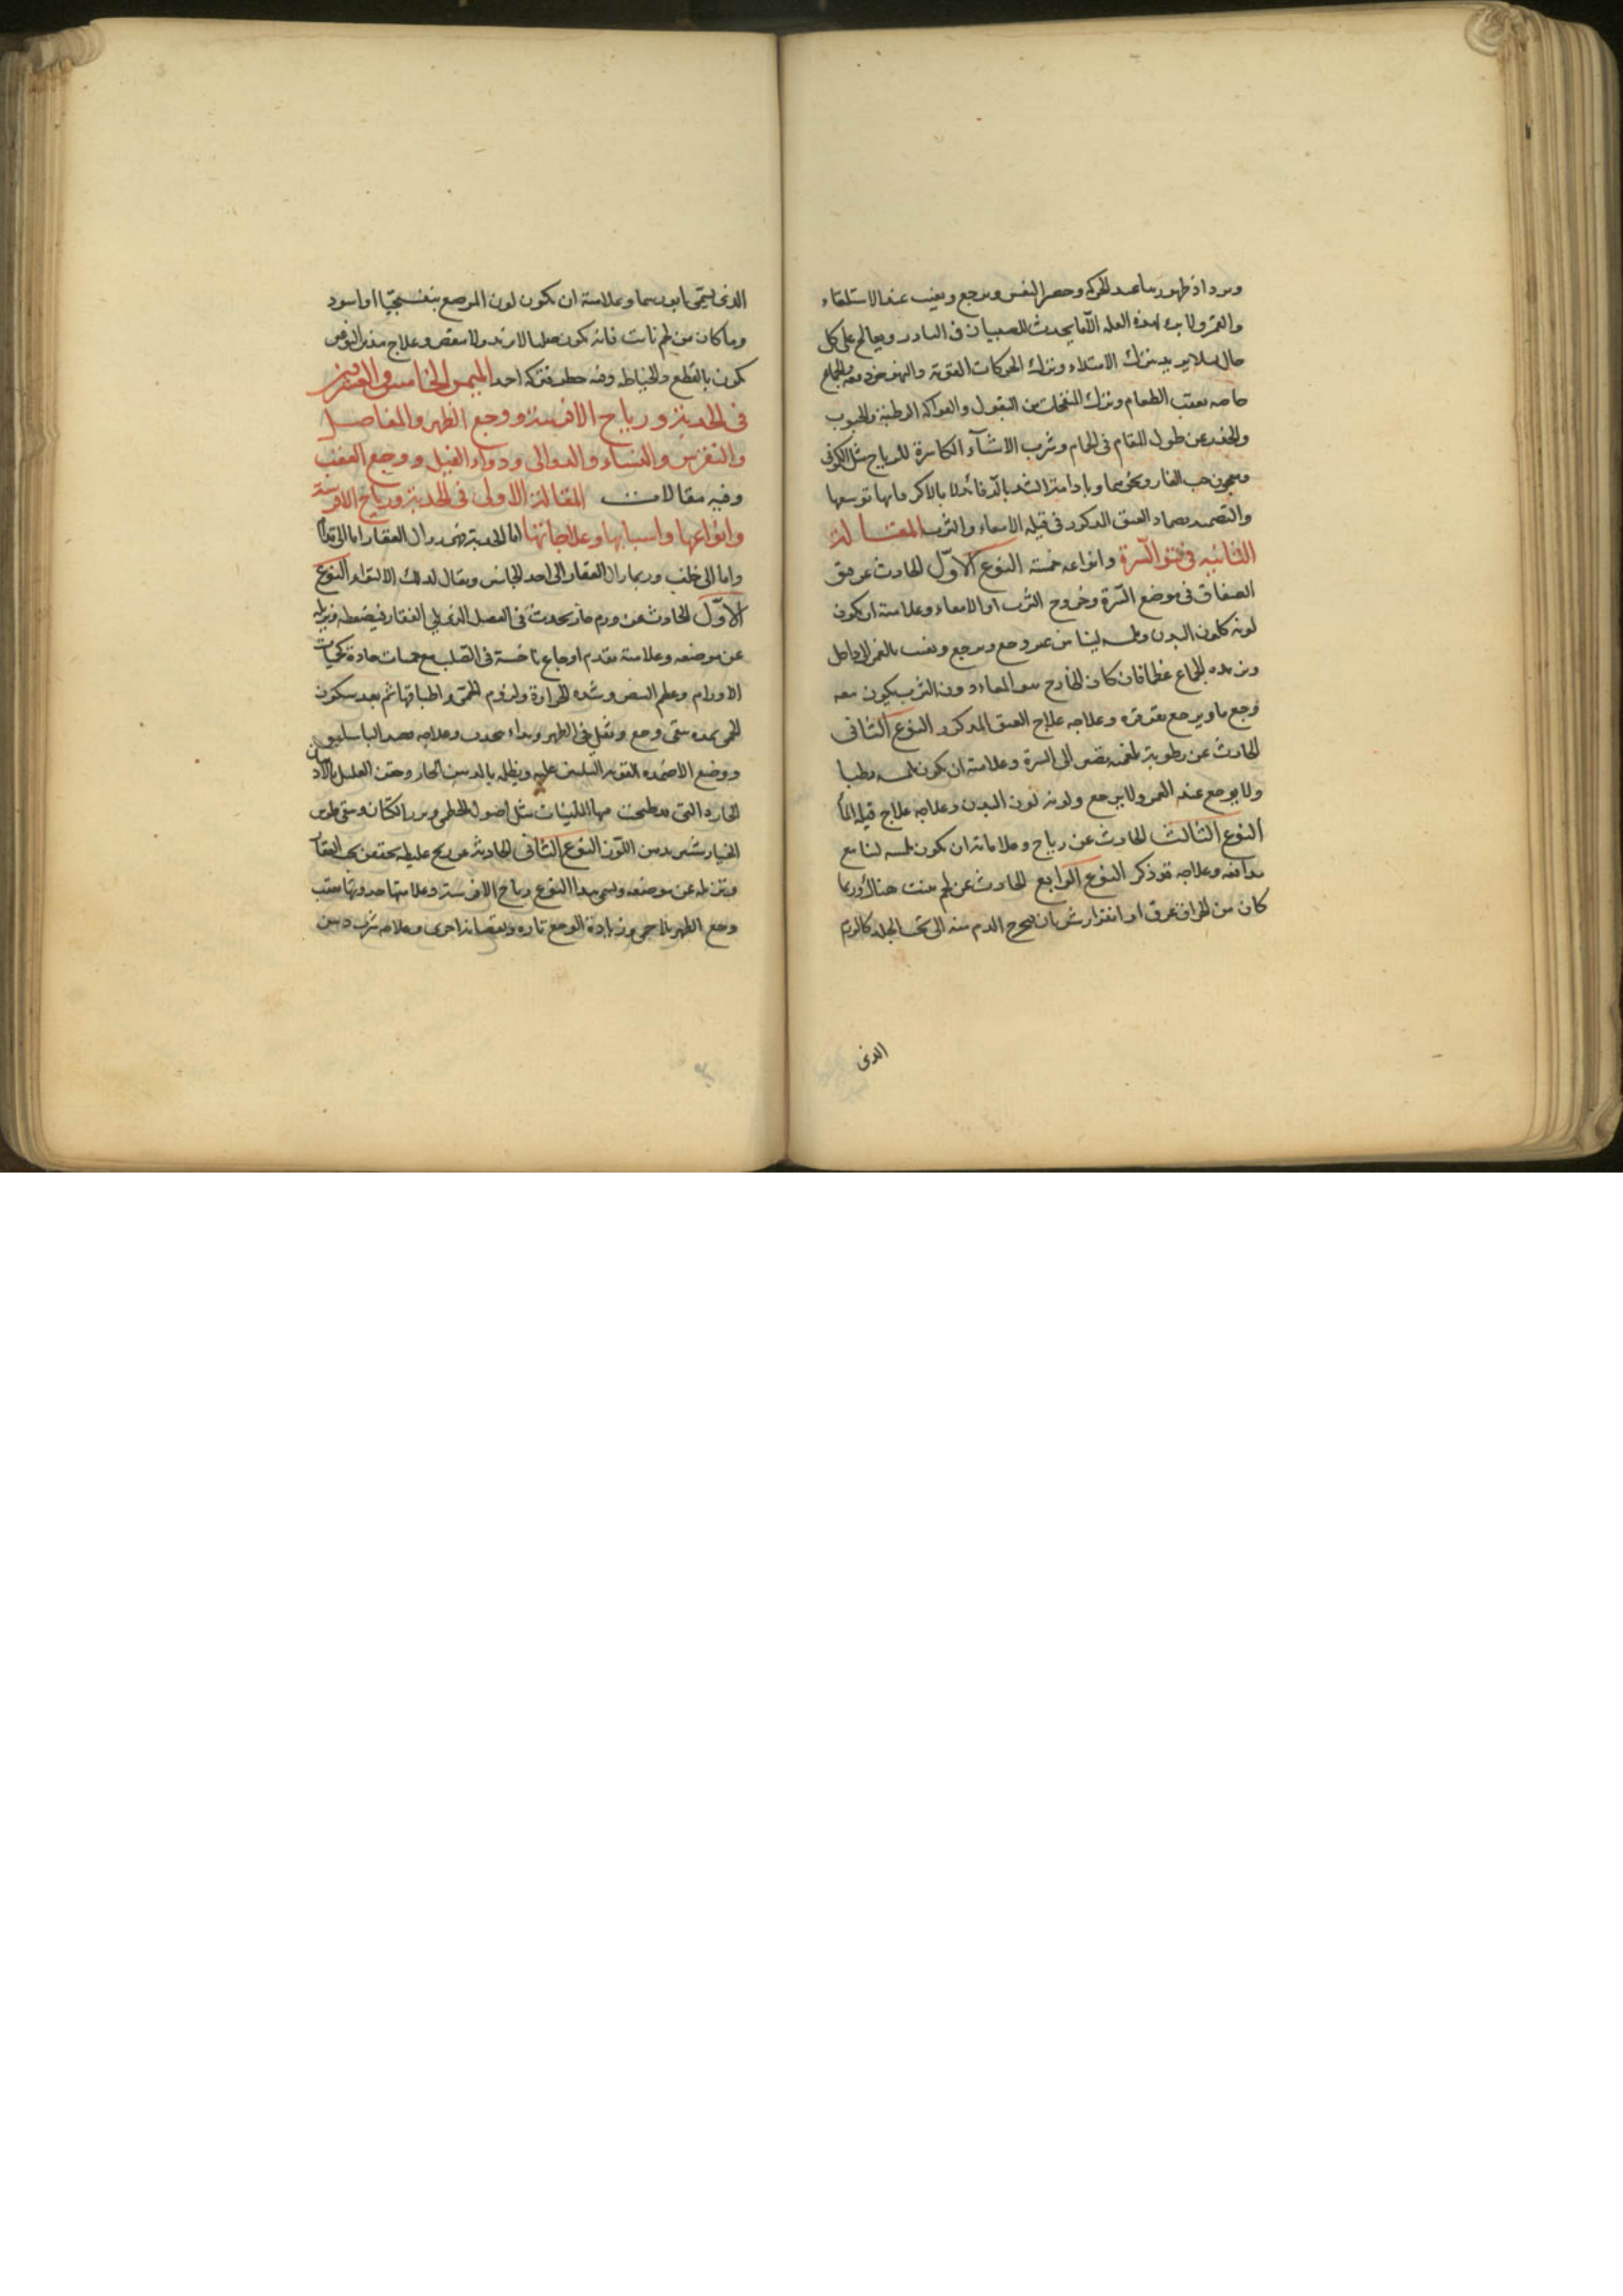 ويزداد ظهورها عند الحركة وحصر النفس ويرجع ويغيب عند الاستلقاء
والغمز ولا برء لهذه العلة الا ما يحدث للصبيان في النادر ويعالج على كل
حال لئلا يزيد بترك الامتلاء وترك الحركات القوية والنهوض دفعة والجماع
خاصة بعقب الطعام وترك المنفخات من البقول والفواكه الرطبة والحبوب
والحذر عن طول المقام في الحمام وشرب الاشياء الكاسرة للرياح مثل الكموني
ومعجون حب الغار ونحوهما وبادامة الشد بالرفائد لا بالاكر فانها توسعها
والتضميد بضماد الفتق المذكور في قيلة الامعاء والثرب المقالة
الثانية في نتو السرة وانواعه خمسة النوع الاول الحادث عن فتق
الصفاق في موضع السرة وخروج الثرب او الامعاء وعلامته ان يكون
لونه كلون البدن ولمسه لينا من غير وجع ويرجع ويغيب بالغمز الى داخل
ويزيده الجماع عظما فان كان الخارج هو المعاء دون الثرب يكون معه
وجع ما ويرجع بقرقرة وعلاجه علاج الفتق المذكور النوع الثاني
الحادث عن رطوبة بلغمية تنصب الى السرة وعلامته ان يكون لمسه رطبا
ولا يوجع عند الغمز ولا يرجع ولونه لون البدن وعلاجه علاج قيلة الماء
النوع الثالث الحادث عن رياح وعلاماته ان يكون لمسه لينا مع
مدافعة وعلاجه قد ذكر النوع الرابع الحادث عن لحم ينبت هناك وربما
كان من انخراق عرق او انفزار شريان يخرج الدم منه الى تحت الجلد كالورم
الذي
الذي يسمى ابورسما وعلامته ان يكون لون الموضع بنفسجيا او اسود
وما كان من لحم نابت فانه يكون صلبا لا يزيد ولا ينقص وعلاج هذين النوعين
يكون بالقطع والخياطة وفيه خطر فتركه احمد الميمر الخامس والعشرين
في الحدبة ورياح الافرسة ووجع الظهر والمفاصل
والنقرس والنساء والدوالي وداء الفيل ووجع العقب
وفيه مقالات المقالة الاولى في الحدبة ورياح الافرسة
وانواعها واسبابها وعلاجاتها اما الحدبة فهي زوال الفقار اما الى قدام
واما الى خلف وربما زال الفقار الى احد الجانبين ويقال لذلك الالتواء النوع
الاول الحادث عن ورم حار يحدث في العضل الذي يلي الفقار فيضغطه ويزيله
عن موضعه وعلامته تقدم اوجاع ناخسة في الصلب مع حميات حادة كحميات
الاورام وعظم النبض وشدة الحرارة ولزوم الحمى واطباقها ثم بعد سكون
الحمى بمدة يبقى وجع وثقل في الظهر ويبداء يحدب وعلاجه فصد الباسليق
ووضع الاضمدة القوية التليين عليه ويطليه بالدهن الحار وحقن العليل بالادهان
الحارة التي قد طبخت فيها الملينات مثل اصول الخطمي وبزر الكتان وسقي فلوس
الخيارشنبر بدهن اللوز النوع الثاني الحادثة عن ريح غليظة يحتقن تحت الفقار
وتزيله عن موضعه ويسمى هذا النوع رياح الافرسة وعلامتها حدوثها بعقب
وجع الظهر بلا حمى وزيادة الوجع تارة ونقصانه اخرى وعلاجه شرب دهن